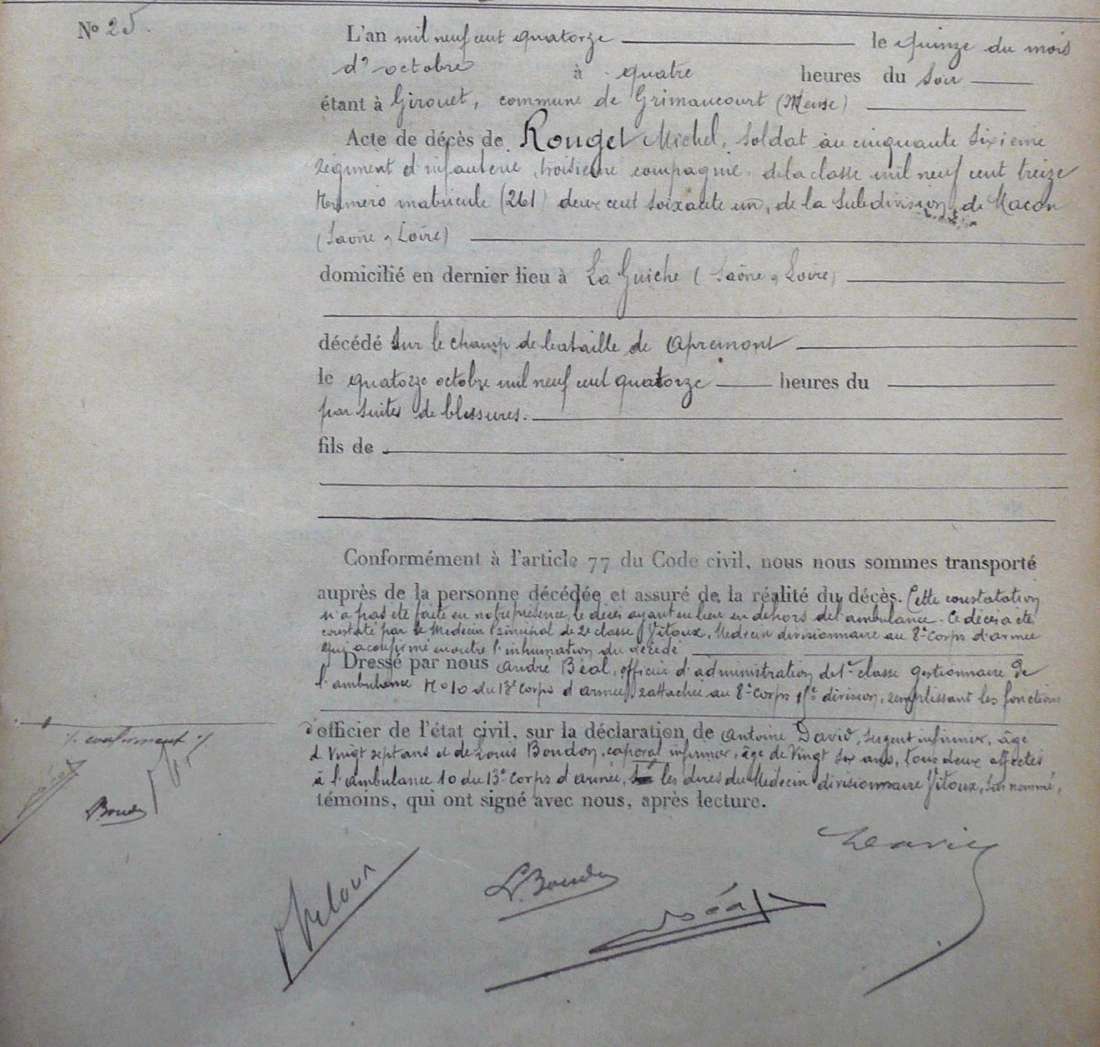 N° 25
L'an mil neuf cent quatorze le quinze du mois
d'octobre à quatre heures du soir
étant à Girouet, commune de Grimaucourt (Meuse)
Acte de décès de Rouget Michel, soldat au cinquante sixième
régiment d'infanterie, troisième compagnie, de la classe mil neuf cent treize
Numéro matricule (261) deux cent soixante un, de la subdivision de Macon
(Saône & Loire)
domicilié en dernier lieu à La Guiche (Saône & Loire)
décédé sur le champ de bataille de Apremont
le quatorze octobre mil neuf cent quatorze heures du
par suites de blessures.
fils de
Conformément à l'article 77 du Code civil, nous nous sommes transporté
auprès de la personne décédée et assuré de la réalité du décès. Cette constatation
n'a pas été faite en notre présence, le décès ayant eu lieu en dehors de l'ambulance. Ce décès a été
constaté par le Medecin principal de 2e classe Vitoux, Medecin divisionnaire au 8e Corps d'armée
qui a confirmé en outre l'inhumation du décédé
Dressé par nous André Béal, officier d'administration de 1re classe gestionnaire de
l'ambulance N° 10 du 13e Corps d'armée, rattachée au 8e Corps 1re division, remplissant les fonctions
d'officier de l'état civil, sur la déclaration de Antoine David, sergent infirmier, âgé
d Vingt sept ans et de Louis Boudon, caporal infirmier, âgé de Vingt six ans, tous deux affectés
à l'ambulance 10 du 13e Corps d'armée, les dires du Medecin divisionnaire Vitoux, sus nommé,
témoins, qui ont signé avec nous, après lecture.
Boudon
L. Boudon
Béal